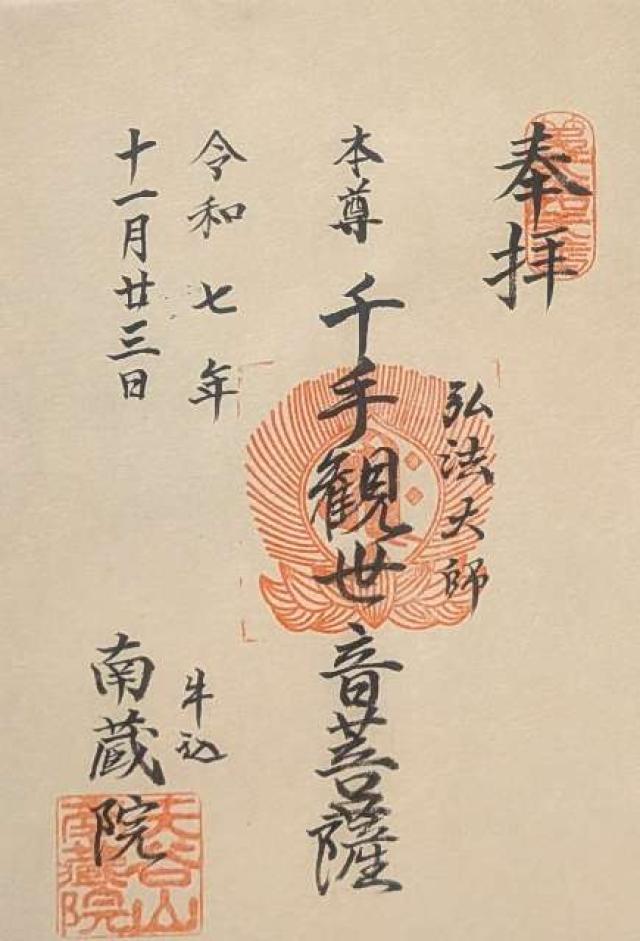 奉拝
弘法大師
本尊 千手観世音菩薩
令和七年
十一月廿三日
牛込
南蔵院
天谷山
南蔵院